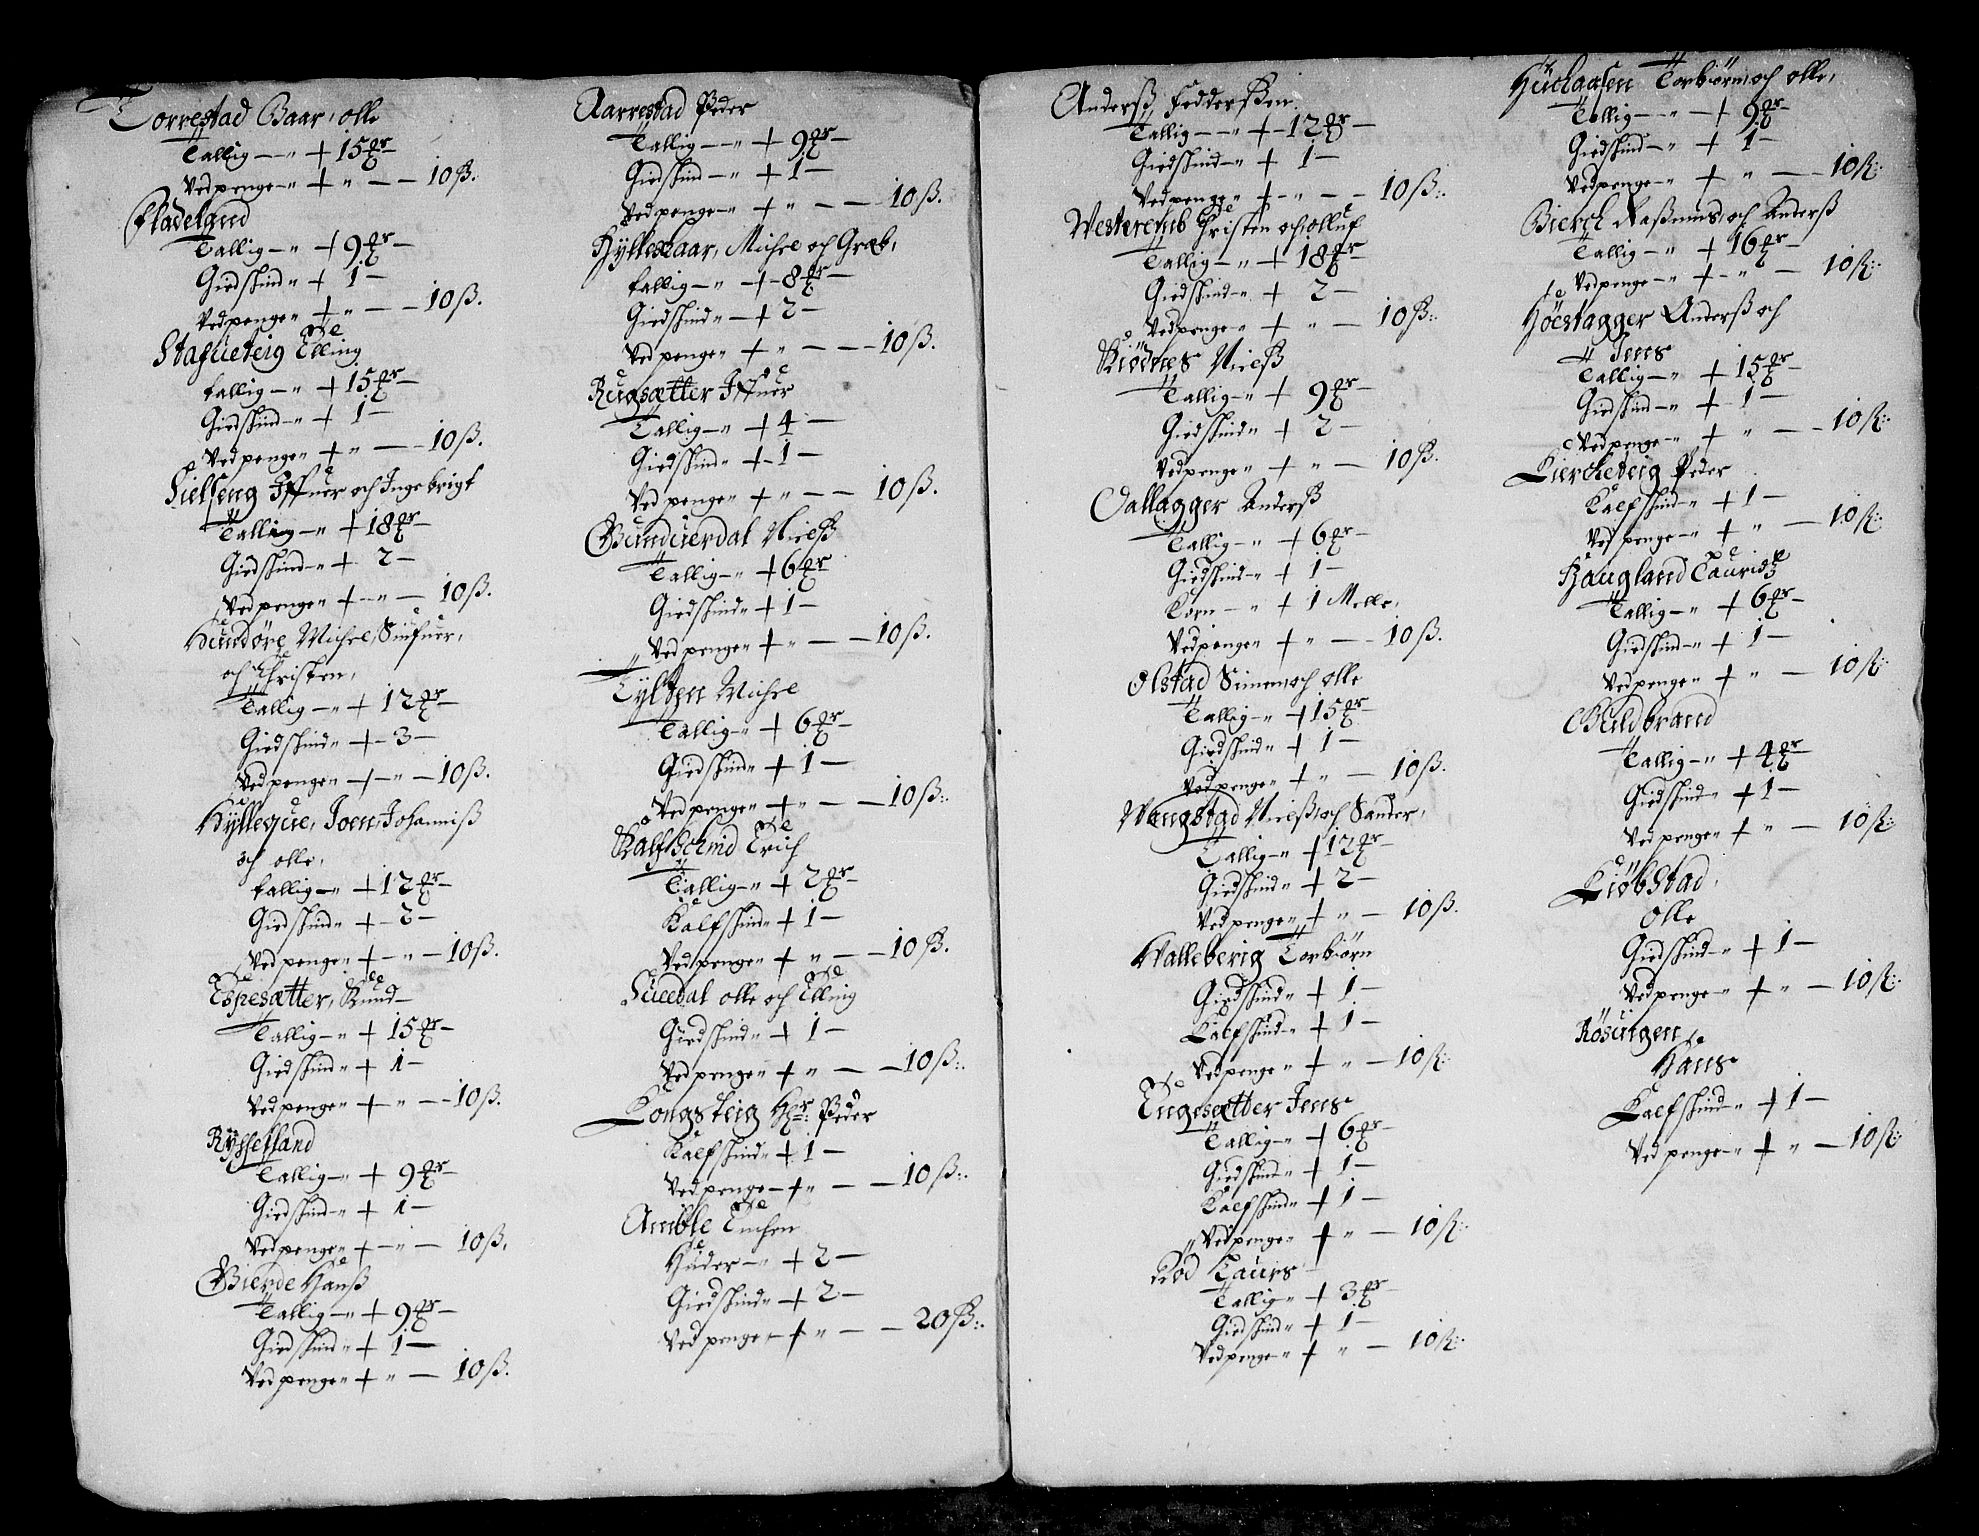 Torrestad Baar, olle
Tallig — " + 15 pr —
Vedpenge " + " — — 10 ß.
Fladeland
Tallig — " + 9 pr —
Giedskind " + 1 —
Vedpenge " + " — — 10 ß.
Stafueteig Elling
tallig — " + 15 pr —
Giedskind — " + 1 —
Vedpenge " + " — — 10 ß.
Sielseng Iffuer och Ingebrigt
Tallig — " + 18 pr —
Giedskind — " + 2 —
Vedpenge " + — " — 10 ß.
Hundøre Michel, Siufuer,
och Christen,
Tallig — " + 12 pr —
Giedskind " + — 3 —
Vedpenge " + — " — 10 ß.
Hyllequie, Joen, Johanniß
och olle,
tallig — " + 12 pr —
Giedskind " + — 2 —
Vedpenge " + — " — 10 ß.
Espesætter, Knud —
Tallig — " + 15 pr —
Giedskind " + 1 —
Vedpenge " + " — — 10 ß.
Rysseland
Tallig — " + 9 pr —
Giedskind — " + 1 —
Vedpenge " + — " — 10 ß,
Gierde Hanß
Tallig — " + 9 pr —
Giedskind " + 1 —
Vedpenge " + " — 10 ß.
Aarrestad Peder
Tallig — — " + 9 pr —
Giedskind — " + 1 —
Vedpenge — " + " — — 10 ß.
Hyllebaar, Michel och Greb,
tallig — " + 8 pr —
Giedskind " — + 2 —
Vedpenge " + " — — — 10 ß.
Rugsætter Iffuer
Tallig — " + 4 —
Giedskind " + — 1 —
Vedpenge " + " — — 10 ß.
Gunduerdal Nielß
Tallig — " + 6 pr
Giedskind " + 1 —
Vedpenge " + " — — 10 ß.
Tyltzen Michel
Tallig — " + 6 pr —
Giedskind " + 1 —
Vedpenge " + " — — 10 ß.
Kalfschind Erich
Tallig — " + 2 pr —
Kalfskind " + 1 —
Vedpenge " + " — — 10 ß.
Suledal olle och Elling
Giedskind " + 1 —
Vedpenge " + " — — 10 ß.
Kongsteig Hr: Peder
Kalfskind " + 1 —
Vedpenge — + " — — 10 ß.
Amble Enchen
Huder — " + 2 —
Giedskind " + 2 —
Vedpenge " + " — — 20 ß.
Anderß Fedderßen
Tallig — — " + 12 pr —
Giedskind — " + 1 —
Vedpenge — " + — " — — 10 ß.
Vesterenb Christen och olluf
Tallig — " + 18 pr
Giedskind — " + 2 —
Vedpenge — " + " — 10 ß.
Skiødnes Nielß
Tallig — " + 9 pr
Giedskind " + 2 —
Vedpenge " + " — 10 ß.
Vallagger Anderß
Tallig — " + 6 pr —
Giedskind — " + 1 —
Korn — " + 1 Melle,
Vedpenge " + " — — 10 ß.
Olstad Simen och olle
Tallig — " + 15 pr
Giedskind " + 1 —
Vedpenge " + " — 10 ß.
Vangstad Nielß och Sander,
Tallig — " + 12 pr —
Giedskind " + 2 —
Vedpenge " + " — 10 ß.
Walleberig Torbiørn
Giedskind " + 1 —
Kalfskind " + 1 —
Vedpenge " + " — 10 ß.
Engesætter Jens
Tallig — " + 6 pr —
Giedskind — " + 1 —
Kalfskind " + 1 —
Vedpenge " + " — 10 ß.
Rød Laurs
Tallig — " + 3 pr —
Giedskind — " + 1 —
Vedpenge — " + " — 10 ß.
Huchaasen Torbiørn och olle,
Tallig — " — + 9 pr
Giedskind — " + 1 —
Vedpenge — " + " — — 10 ß.
Bierch Raßmus och Anderß
Tallig — " + 16 pr —
Vedpenge — " + — " — 10 ß.
Høestagger Anderß och
Jens
Tallig — " + 15 pr —
Giedskind — " + 1 —
Vedpenge — " + " — — 10 ß.
Kiercheteig Peder
Kalfskind — " + 1 —
Vedpenge — " + " — 10 ß.
Haugland Lauridz
Tallig — " + 6 pr —
Giedskind — " + 1 —
Vedpenge — " + " — 10 ß.
Guldbrand
Tallig — " + 4 pr
Giedskind — " + 1 —
Vedpenge " + " — 10 ß.
Kiøbstad,
Olle
Giedskind — " + 1 —
Vedpenge — " + " — 10 ß.
Røsungen
Hans
Kalfskind — " + 1 —
Vedpenge — " + " — 10 ß.